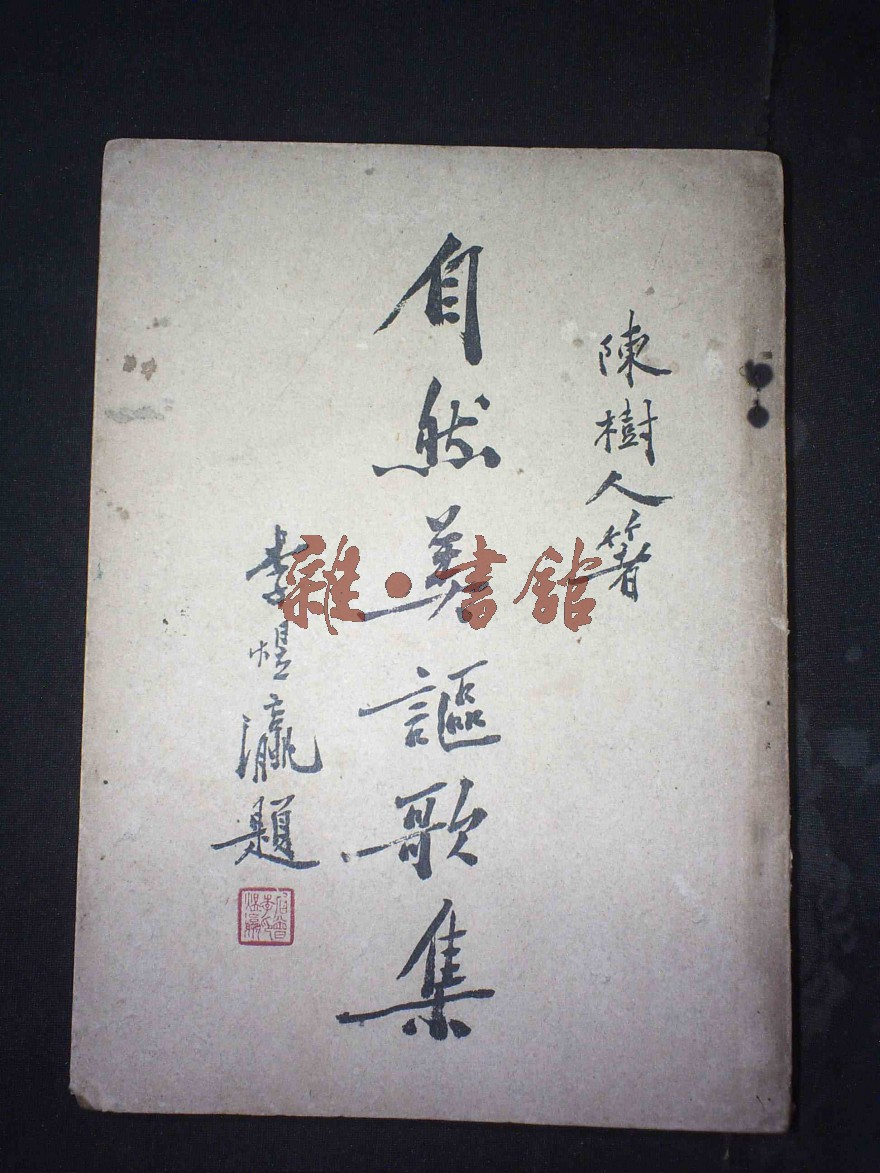 陳樹人著
自然美謳歌集
李煜瀛題
雜·書館